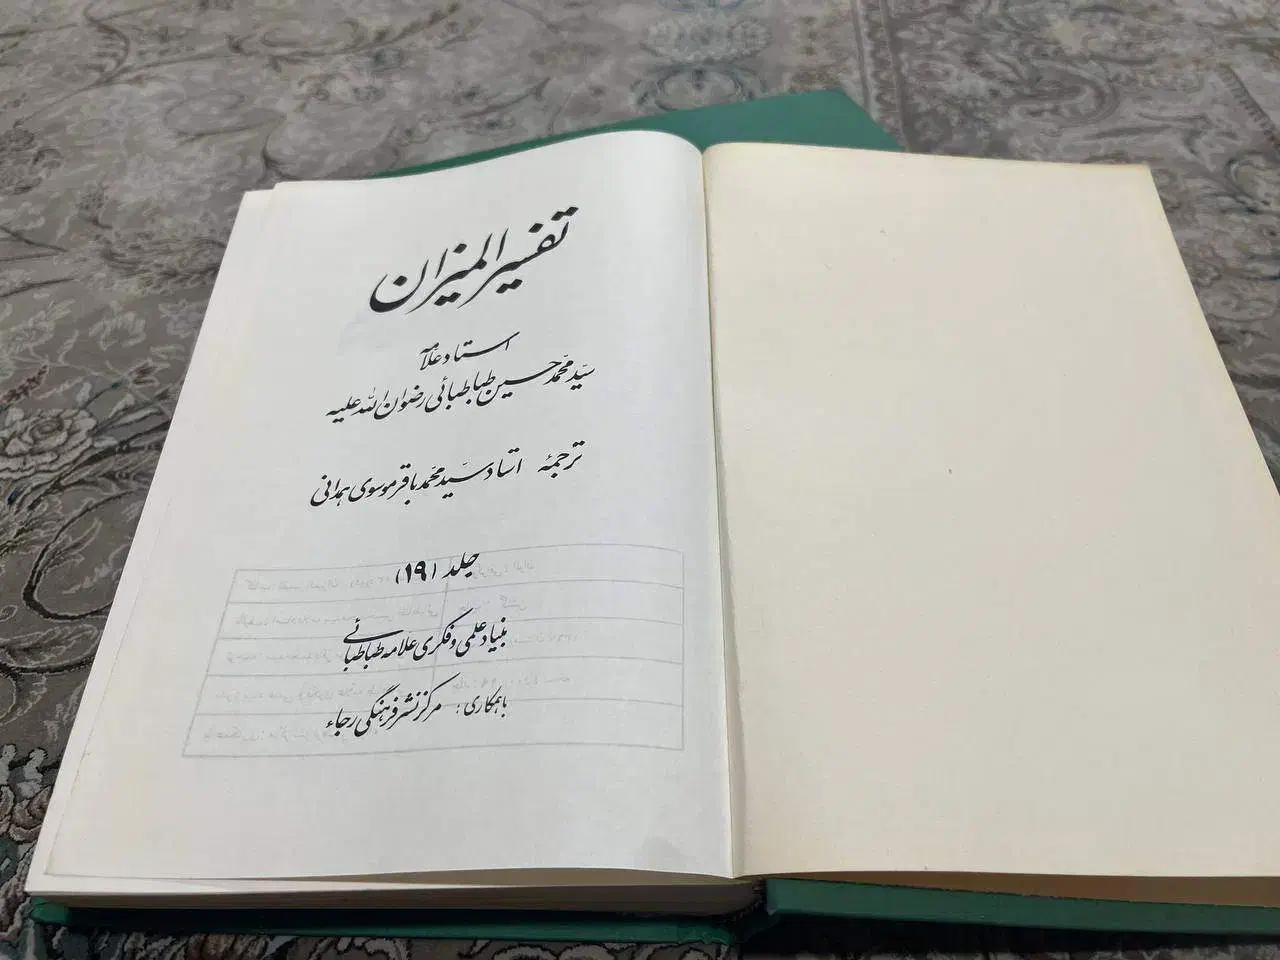 تفسیر المیزان
استاد علامه
سید محمد حسین طباطبائی رضوان الله علیه
ترجمهٔ استاد سید محمد باقر موسوی همدانی
جلد (۱۹)
بنیاد علمی و فکری علامه طباطبائی
با همکاری: مرکز نشر فرهنگی رجاء